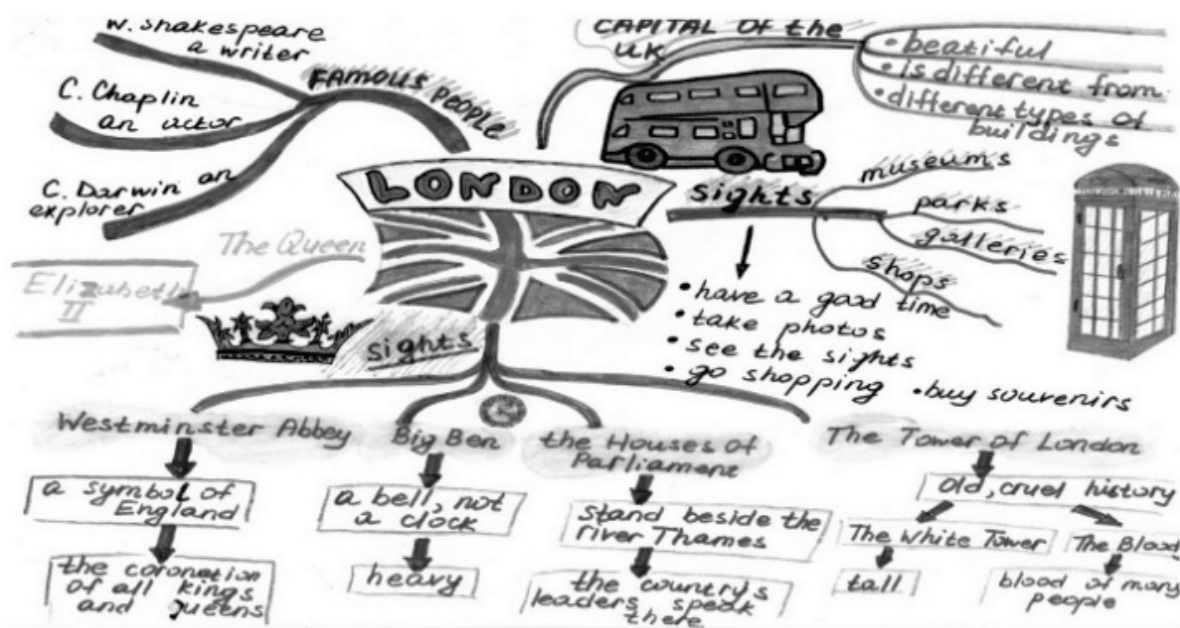 W. Shakespeare
a writer
FAMOUS PEOPLE
C. Chaplin
an actor
C. Darwin an
explorer
The Queen
Elizabeth
II
LONDON
CAPITAL OF the
UK
• beatiful
• is different from
• different types of
buildings
sights
museums
parks
galleries
shops
• have a good time
• take photos
• see the sights
• go shopping • buy souvenirs
sights
Westminster Abbey
a symbol of
England
the coronation
of all kings
and queens
Big Ben
a bell, not
a clock
heavy
the Houses of
Parliament
stand beside the
river Thames
the country's
leaders speak
there
The Tower of London
old, cruel history
The White Tower
tall
The Blood
blood of many
people